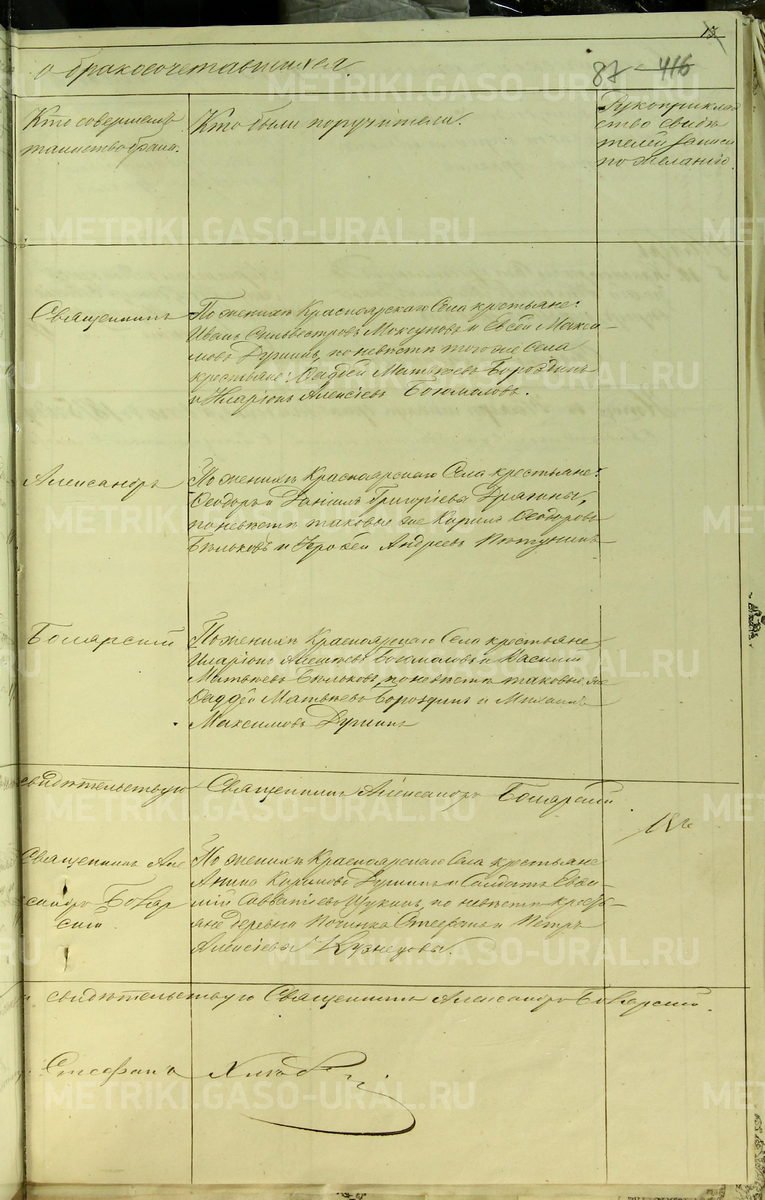 15
о бракосочетавшихся.
87 416
Кто совершалъ
таинство брака.
Кто были поручители.
Рукоприклад
ство свидѣ
телей записи
по желанію.
Священникъ
По женихѣ Красноярскаго Села крестьяне:
Иванъ Сильвестровъ и Евсей Макси-
мовъ по невѣстѣ того же Села
крестьяне: Фаддей Матвѣевъ Бороздинъ
и Иларіонъ Алексѣевъ
Александръ
По женихѣ Красноярскаго Села крестьяне:
Ѳеодоръ и Даніилъ Григорьевы
по невѣстѣ таковые же Кирилъ Ѳеодоровъ
Бѣльковъ и Андреевъ
Боярскій
По женихѣ Красноярскаго Села крестьяне
Иларіонъ и Василій
Матвѣевъ Бѣльковъ, по невѣстѣ таковые же
Фаддей Матвѣевъ Бороздинъ и Михаилъ
Максимовъ
свидѣтельствую Священникъ Александръ Боярскій
Священникъ Але
ксандръ Бояр
скій
По женихѣ Красноярскаго Села крестьяне
и Солдатъ Евѳи-
мій Савватіевъ Щукинъ, по невѣстѣ кресть-
яне деревни Починка Стефанъ и Петръ
Алексѣевы Кузнецовы.
свидѣтельствую Священникъ Александръ Боярскій.
Стефанъ
METRIKI.GASO-URAL.RU